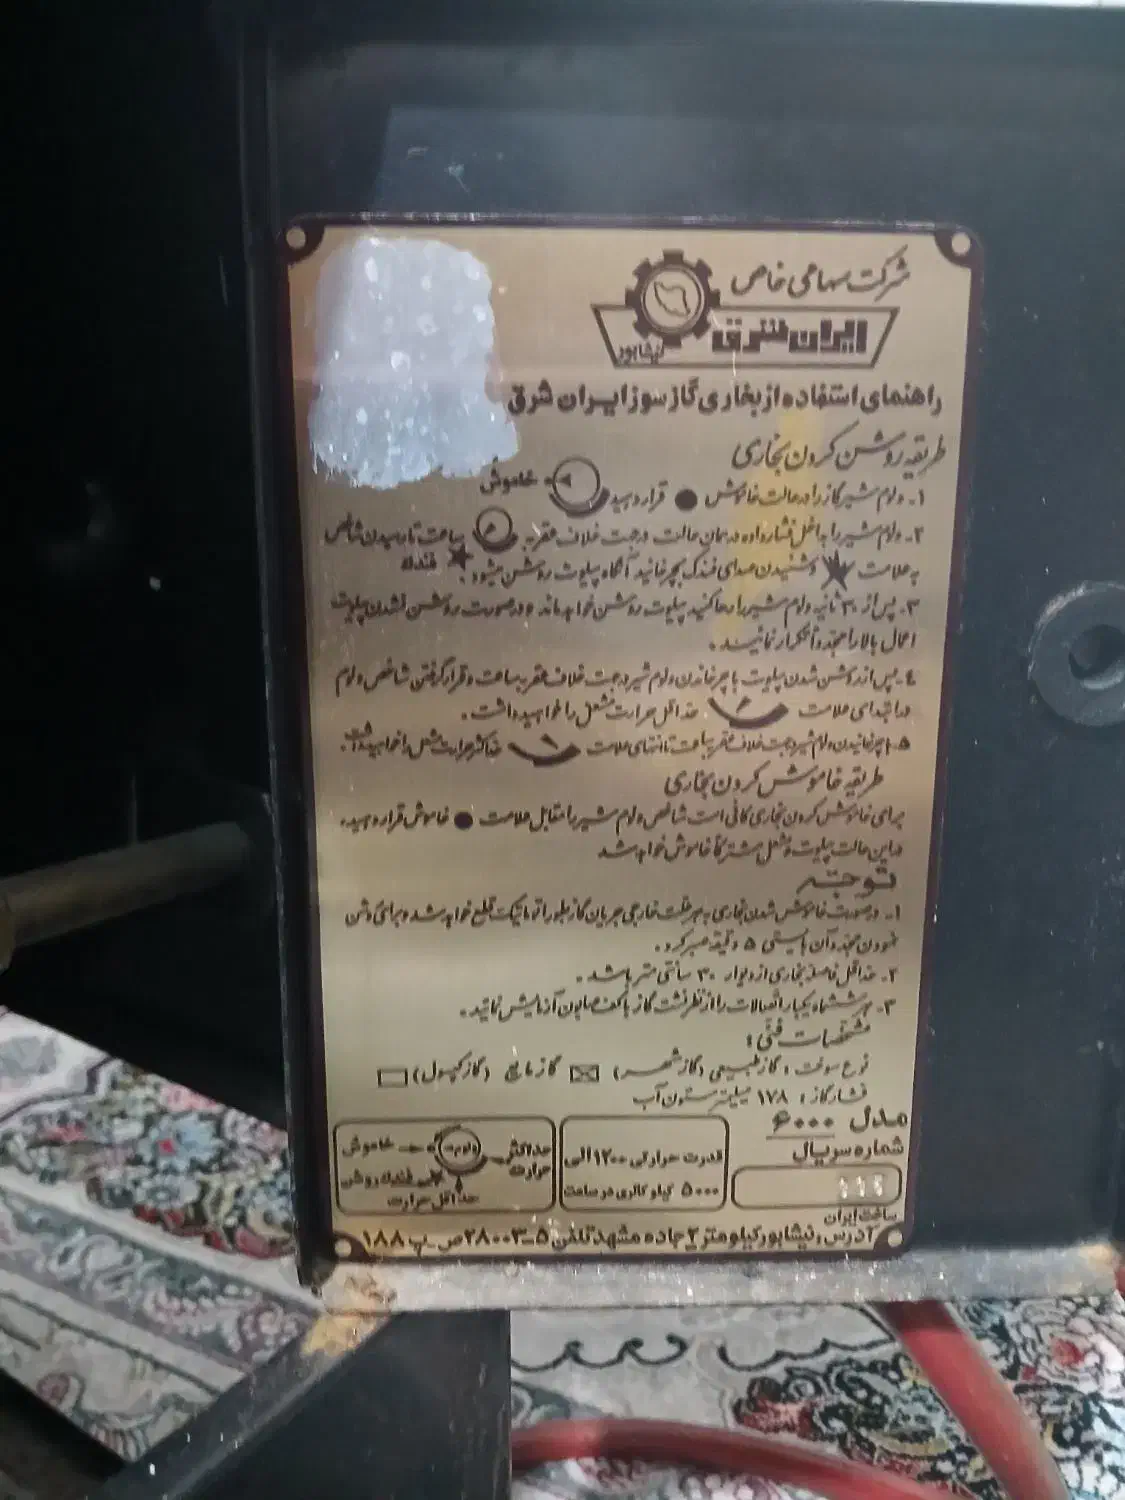 شرکت سهامی خاص
ایران شرق
نیشابور
راهنمای استفاده از بخاری گاز سوز ایران شرق
طریقه روشن کردن بخاری
۱- ولوم شیر گاز را در حالت خاموش ● قرار دهید خاموش
۲- ولوم شیر را بداخل فشار داده در همان حالت در جهت خلاف عقربه ساعت تا رسیدن شاخص
به علامت ★ و شنیدن صدای فندک بچرخانید آنگاه پیلوت روشن میشود. ★ فندک
۳- پس از ۳۰ ثانیه ولوم شیر را رها کنید پیلوت روشن خواهد ماند و در صورت روشن نشدن پیلوت
اعمال بالا را مجدداً تکرار نمائید.
٤- پس از روشن شدن پیلوت با چرخاندن ولوم شیر در جهت خلاف عقربه ساعت و قرار گرفتن شاخص ولوم
در ابتدای علامت حداقل حرارت مشعل را خواهید داشت.
۵- با چرخانیدن ولوم شیر در جهت خلاف عقربه ساعت تا انتهای علامت حداکثر حرارت مشعل را خواهید داشت.
طریقه خاموش کردن بخاری
برای خاموش کردن بخاری کافی است شاخص ولوم شیر را مقابل علامت ● خاموش قرار دهید.
در این حالت پیلوت و مشعل مشترکاً خاموش خواهد شد
توجه
۱- در صورت خاموش شدن بخاری به هر علت خارجی جریان گاز بطور اتوماتیک قطع خواهد شد و برای روشن
نمودن مجدد آن بایستی ۵ دقیقه صبر کرد.
۲- حداقل فاصله بخاری از دیوار ۳۰ سانتی متر باشد.
۳- هر ششماه یکبار اتصالات را از نظر نشت گاز با کف صابون آزمایش نمائید.
مشخصات فنی:
نوع سوخت: گاز طبیعی (گاز شهر) ☒ گاز مایع (گاز کپسول) ☐
فشار گاز: ۱۷۸ میلیمتر ستون آب
مدل ۶۰۰۰
شماره سریال
قدرت حرارتی ۱۲۰۰ الی
۵۰۰۰ کیلو کالری در ساعت
حداکثر حرارت
ولوم
خاموش
فندک روشن
حداقل حرارت
ساخت ایران
آدرس: نیشابور کیلومتر ۲ جاده مشهد تلفن ۵-۲۸۰۰۳ ص-پ ۱۸۸